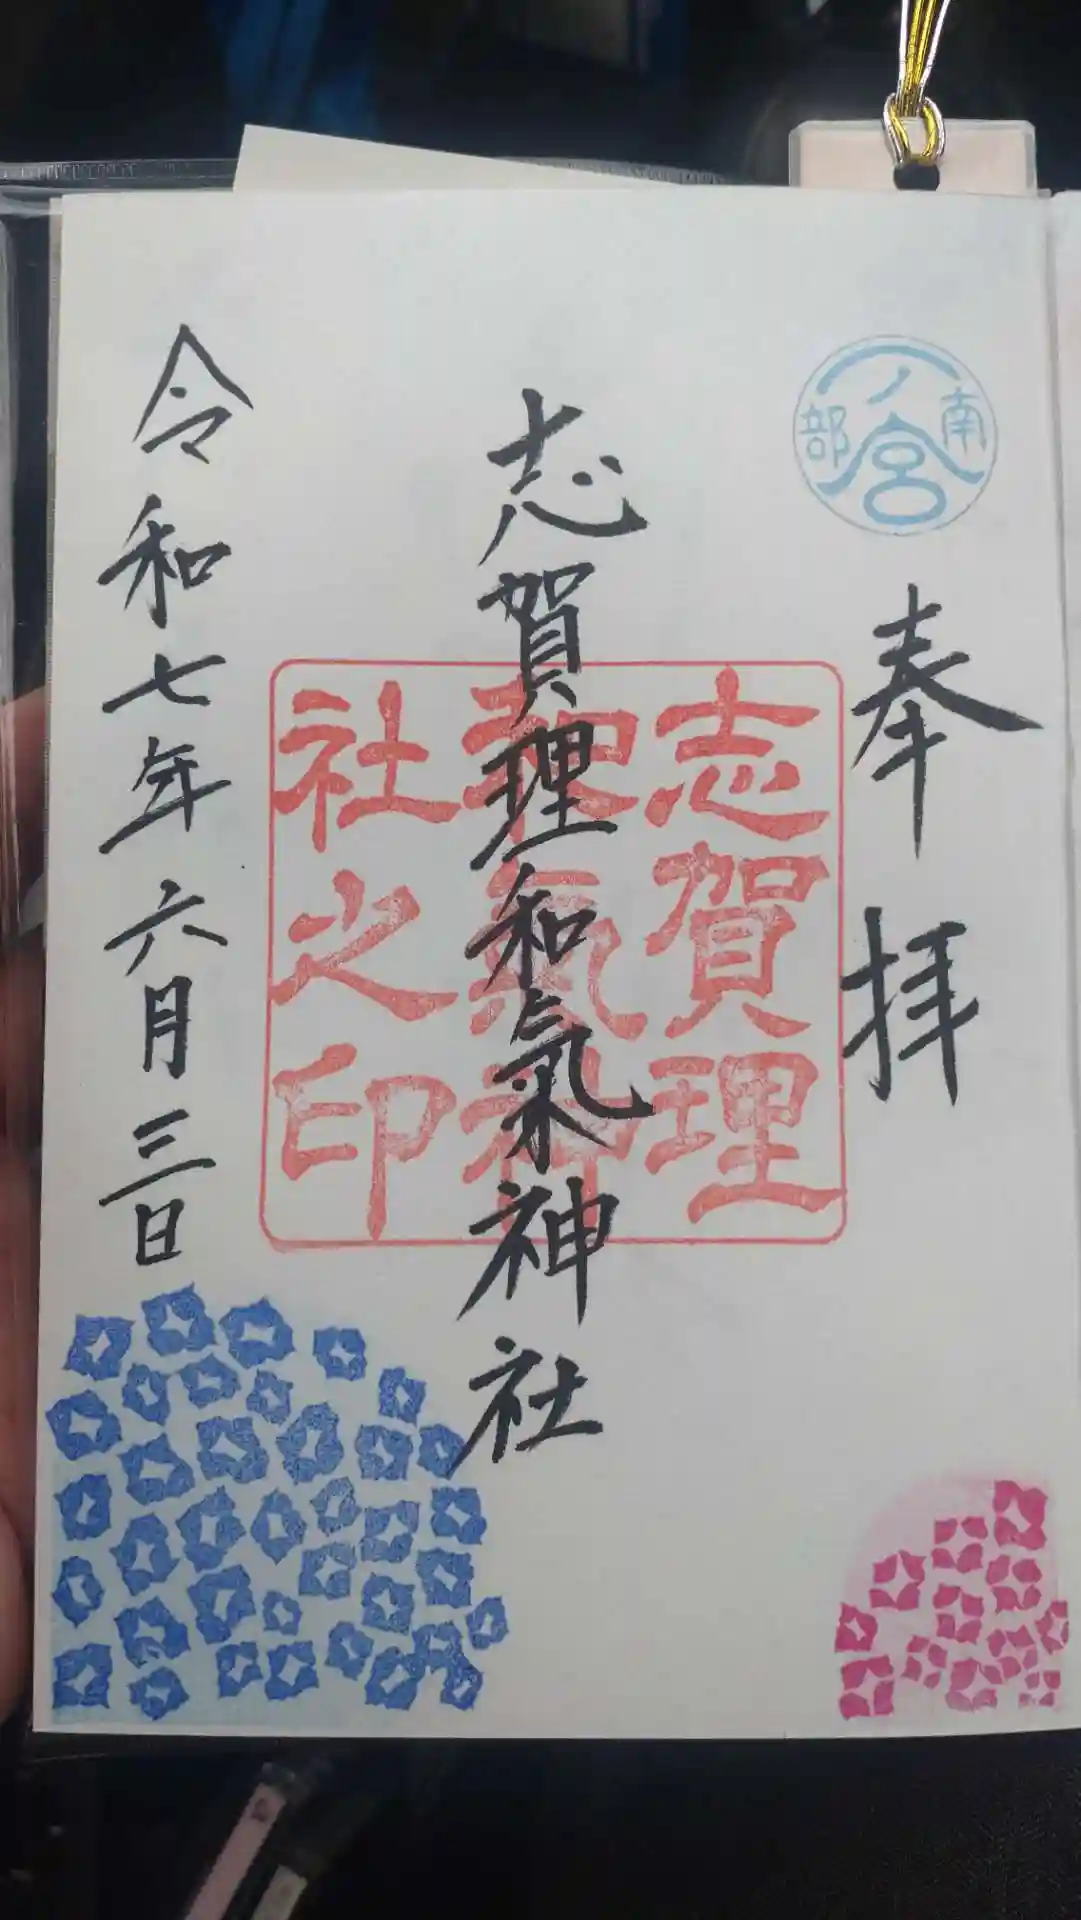 一ノ宮
南部
奉拝
志賀理和氣神社
志賀理
和氣神
社之印
令和七年六月三日